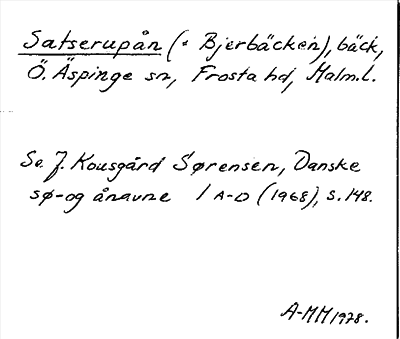 Satserupån (= Bjerbäcken), bäck,
Ö. Äspinge sn, Frosta hd, Malm.l.
Se J. Kousgård Sørensen, Danske
sø-og ånavne I A-D (1968), s. 148.
A-MM 1978.